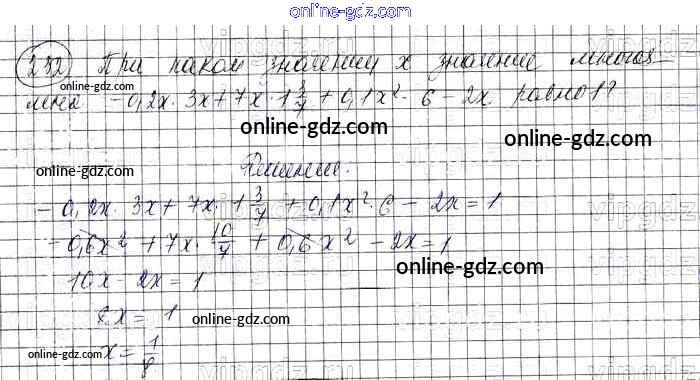 online-gdz.com
232 При каком значении x значение многоч-
лена -0,2x · 3x + 7x · 1 3/7 + 0,1x² · 6 - 2x равно 1?
online-gdz.com
online-gdz.com online-gdz.com
Решение:
-0,2x · 3x + 7x · 1 3/7 + 0,1x² · 6 - 2x = 1
-0,6x² + 7x · 10/7 + 0,6x² - 2x = 1
online-gdz.com
10x - 2x = 1
8x = 1 online-gdz.com
online-gdz.com x = 1/8